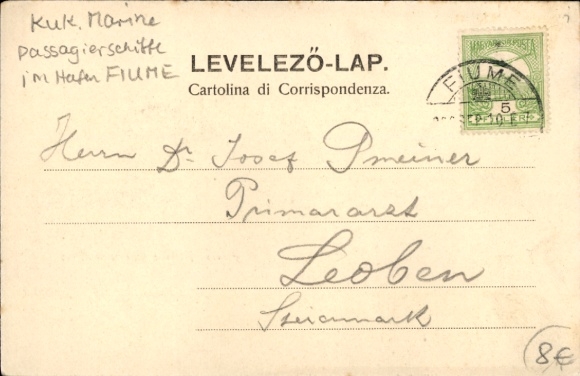 KuK. Marine
Passagierschiffe
im Hafen FIUME
LEVELEZŐ-LAP.
Cartolina di Corrispondenza.
MAGYAR KIR. POSTA
FIUME
5
Herrn Dr. Josef Pmeiner
Primararzt
Leoben
Steiermark
8€